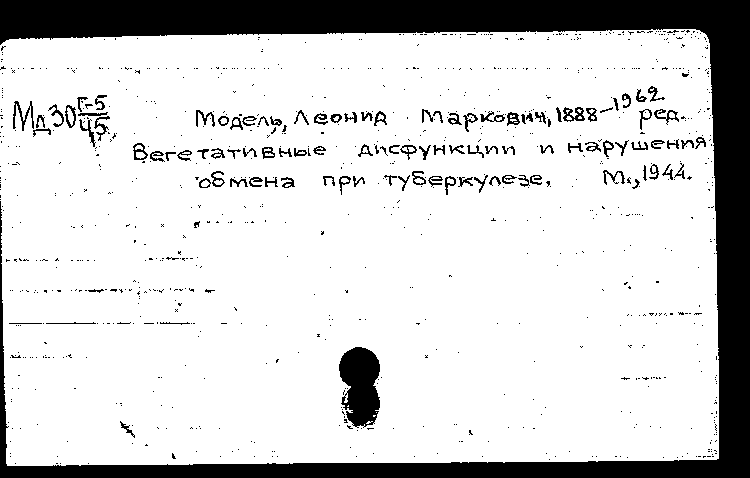 Мд30 Г-5/45
Модель, Леонид Маркович, 1888-1962 ред.
Вегетативные дисфункции и нарушения
обмена при туберкулезе. М., 1944.